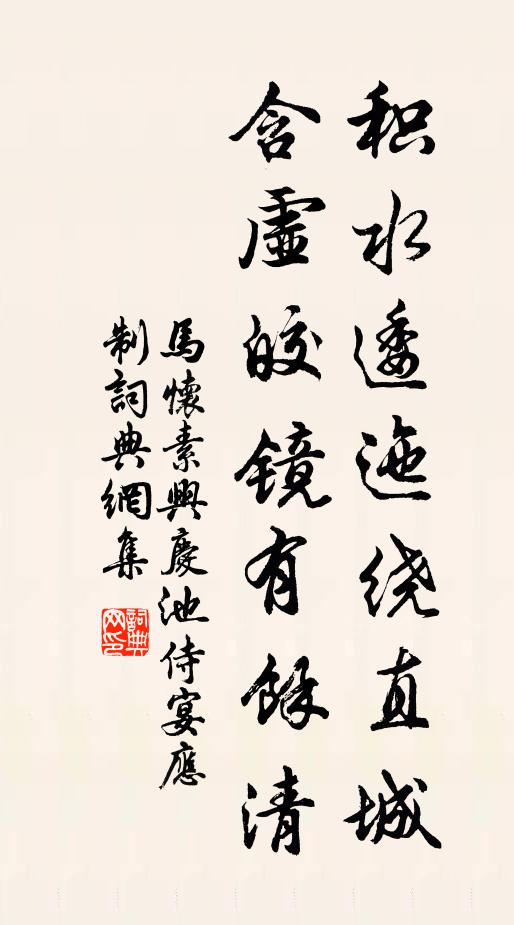 积水逶迤绕直城
含虚皎镜有餘清
馬懷素興慶池侍宴應
制詞典網集
詞典網印